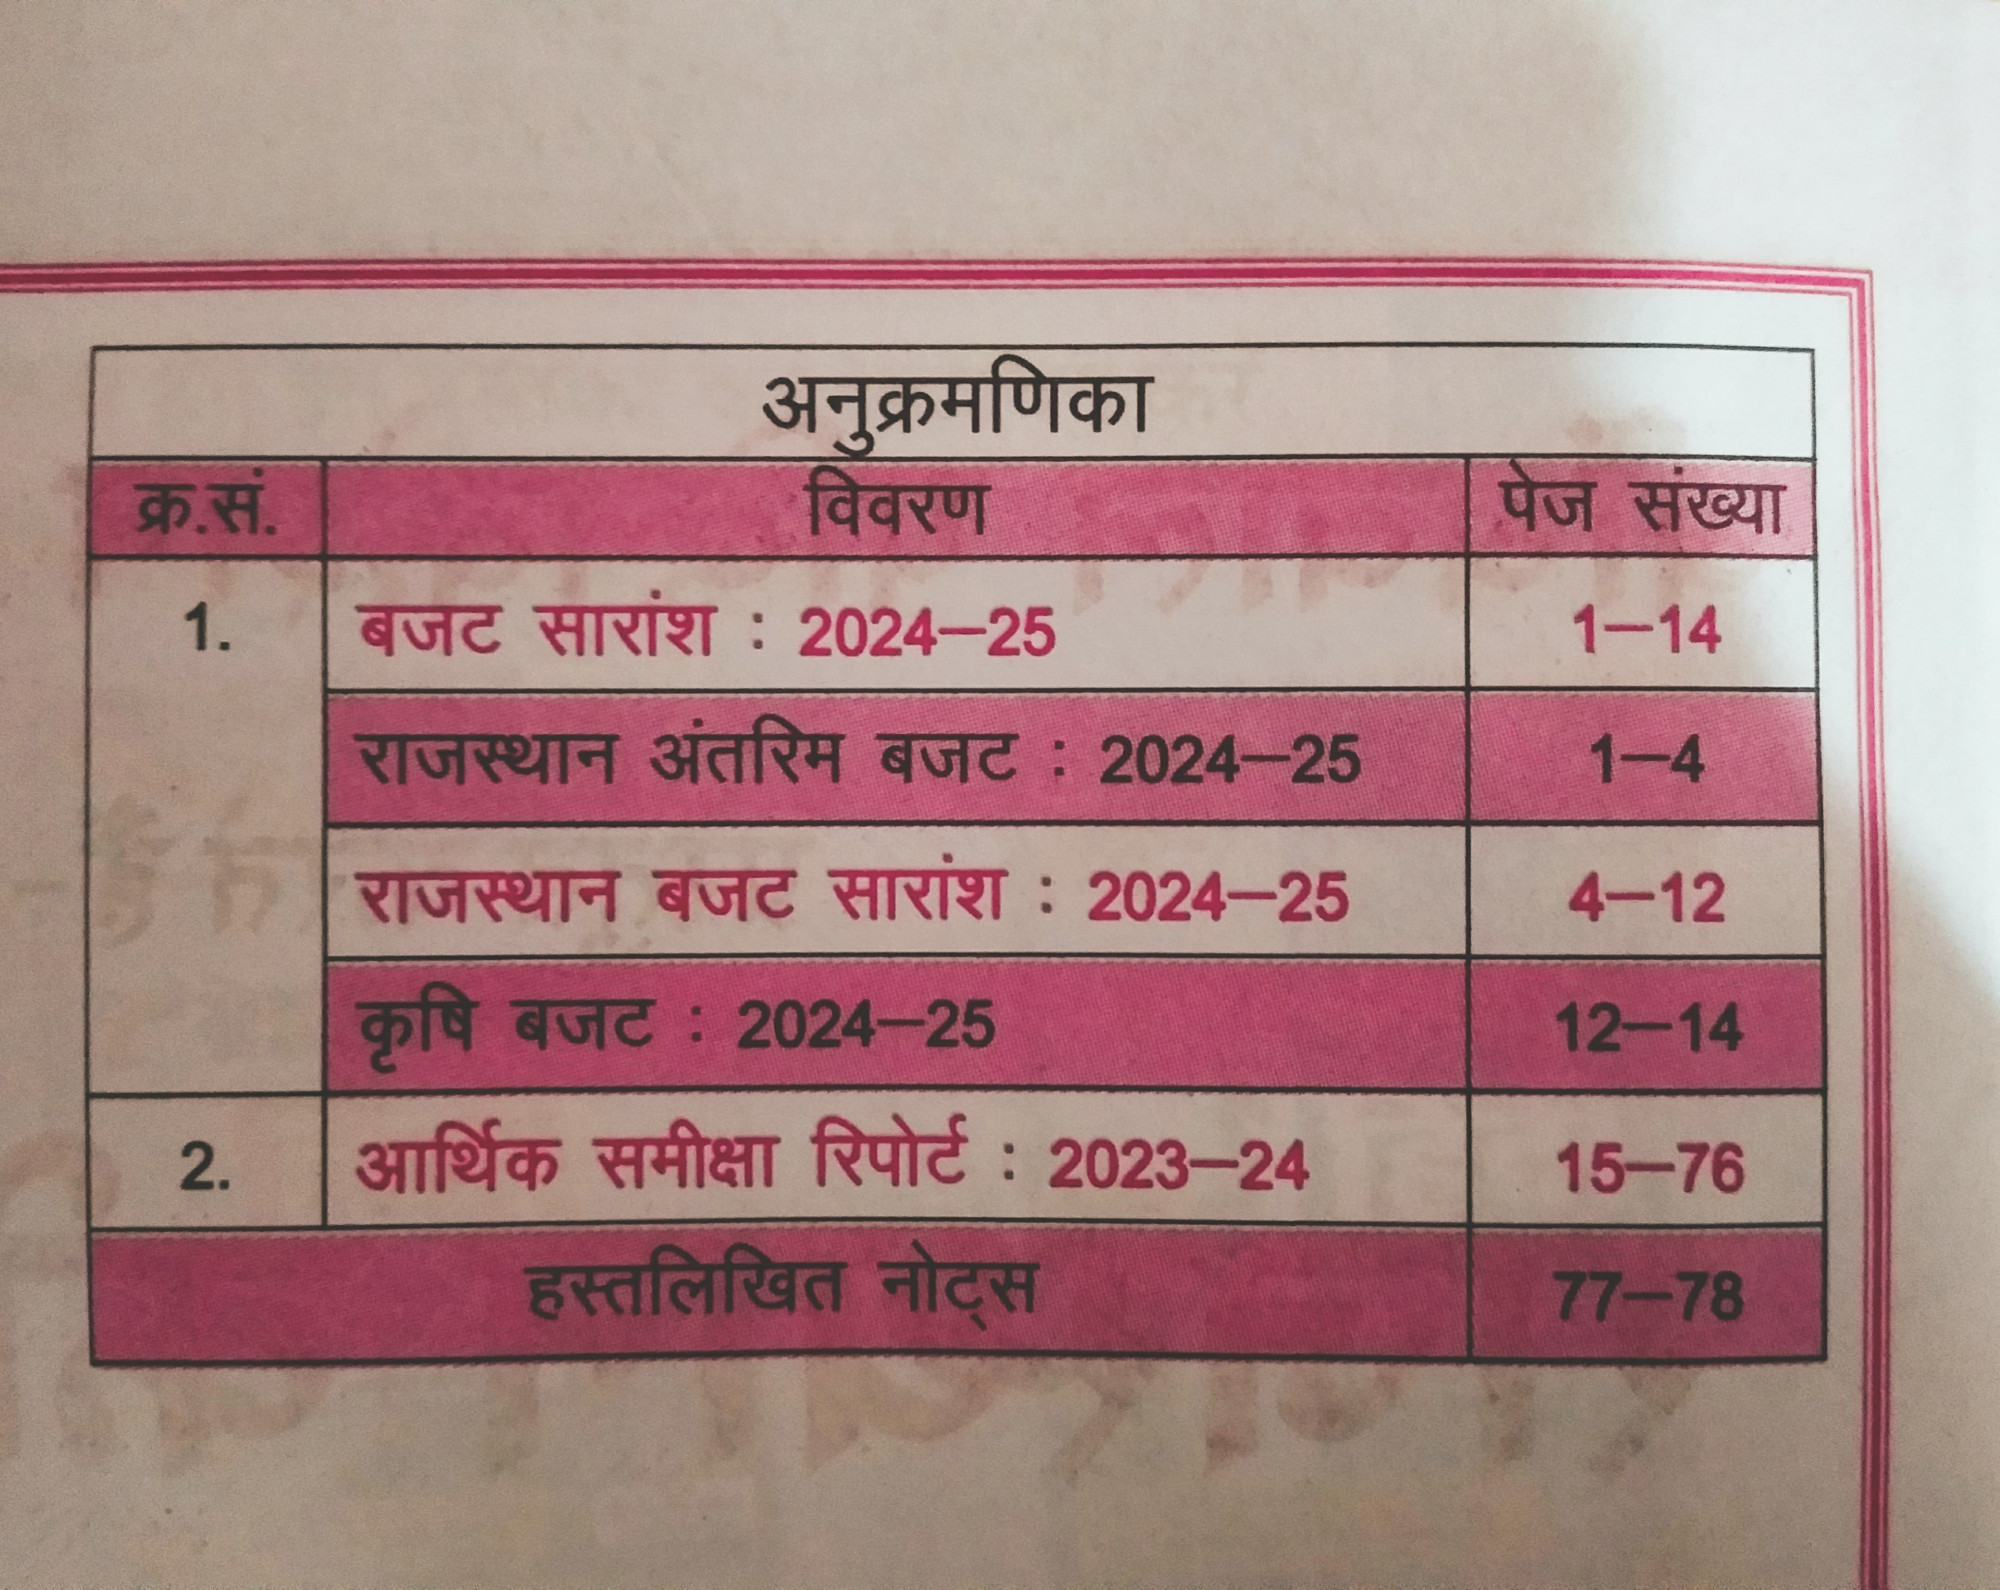 अनुक्रमणिका
क्र.सं. विवरण पेज संख्या
1. बजट सारांश : 2024–25 1–14
राजस्थान अंतरिम बजट : 2024–25 1–4
राजस्थान बजट सारांश : 2024–25 4–12
कृषि बजट : 2024–25 12–14
2. आर्थिक समीक्षा रिपोर्ट : 2023–24 15–76
हस्तलिखित नोट्स 77–78